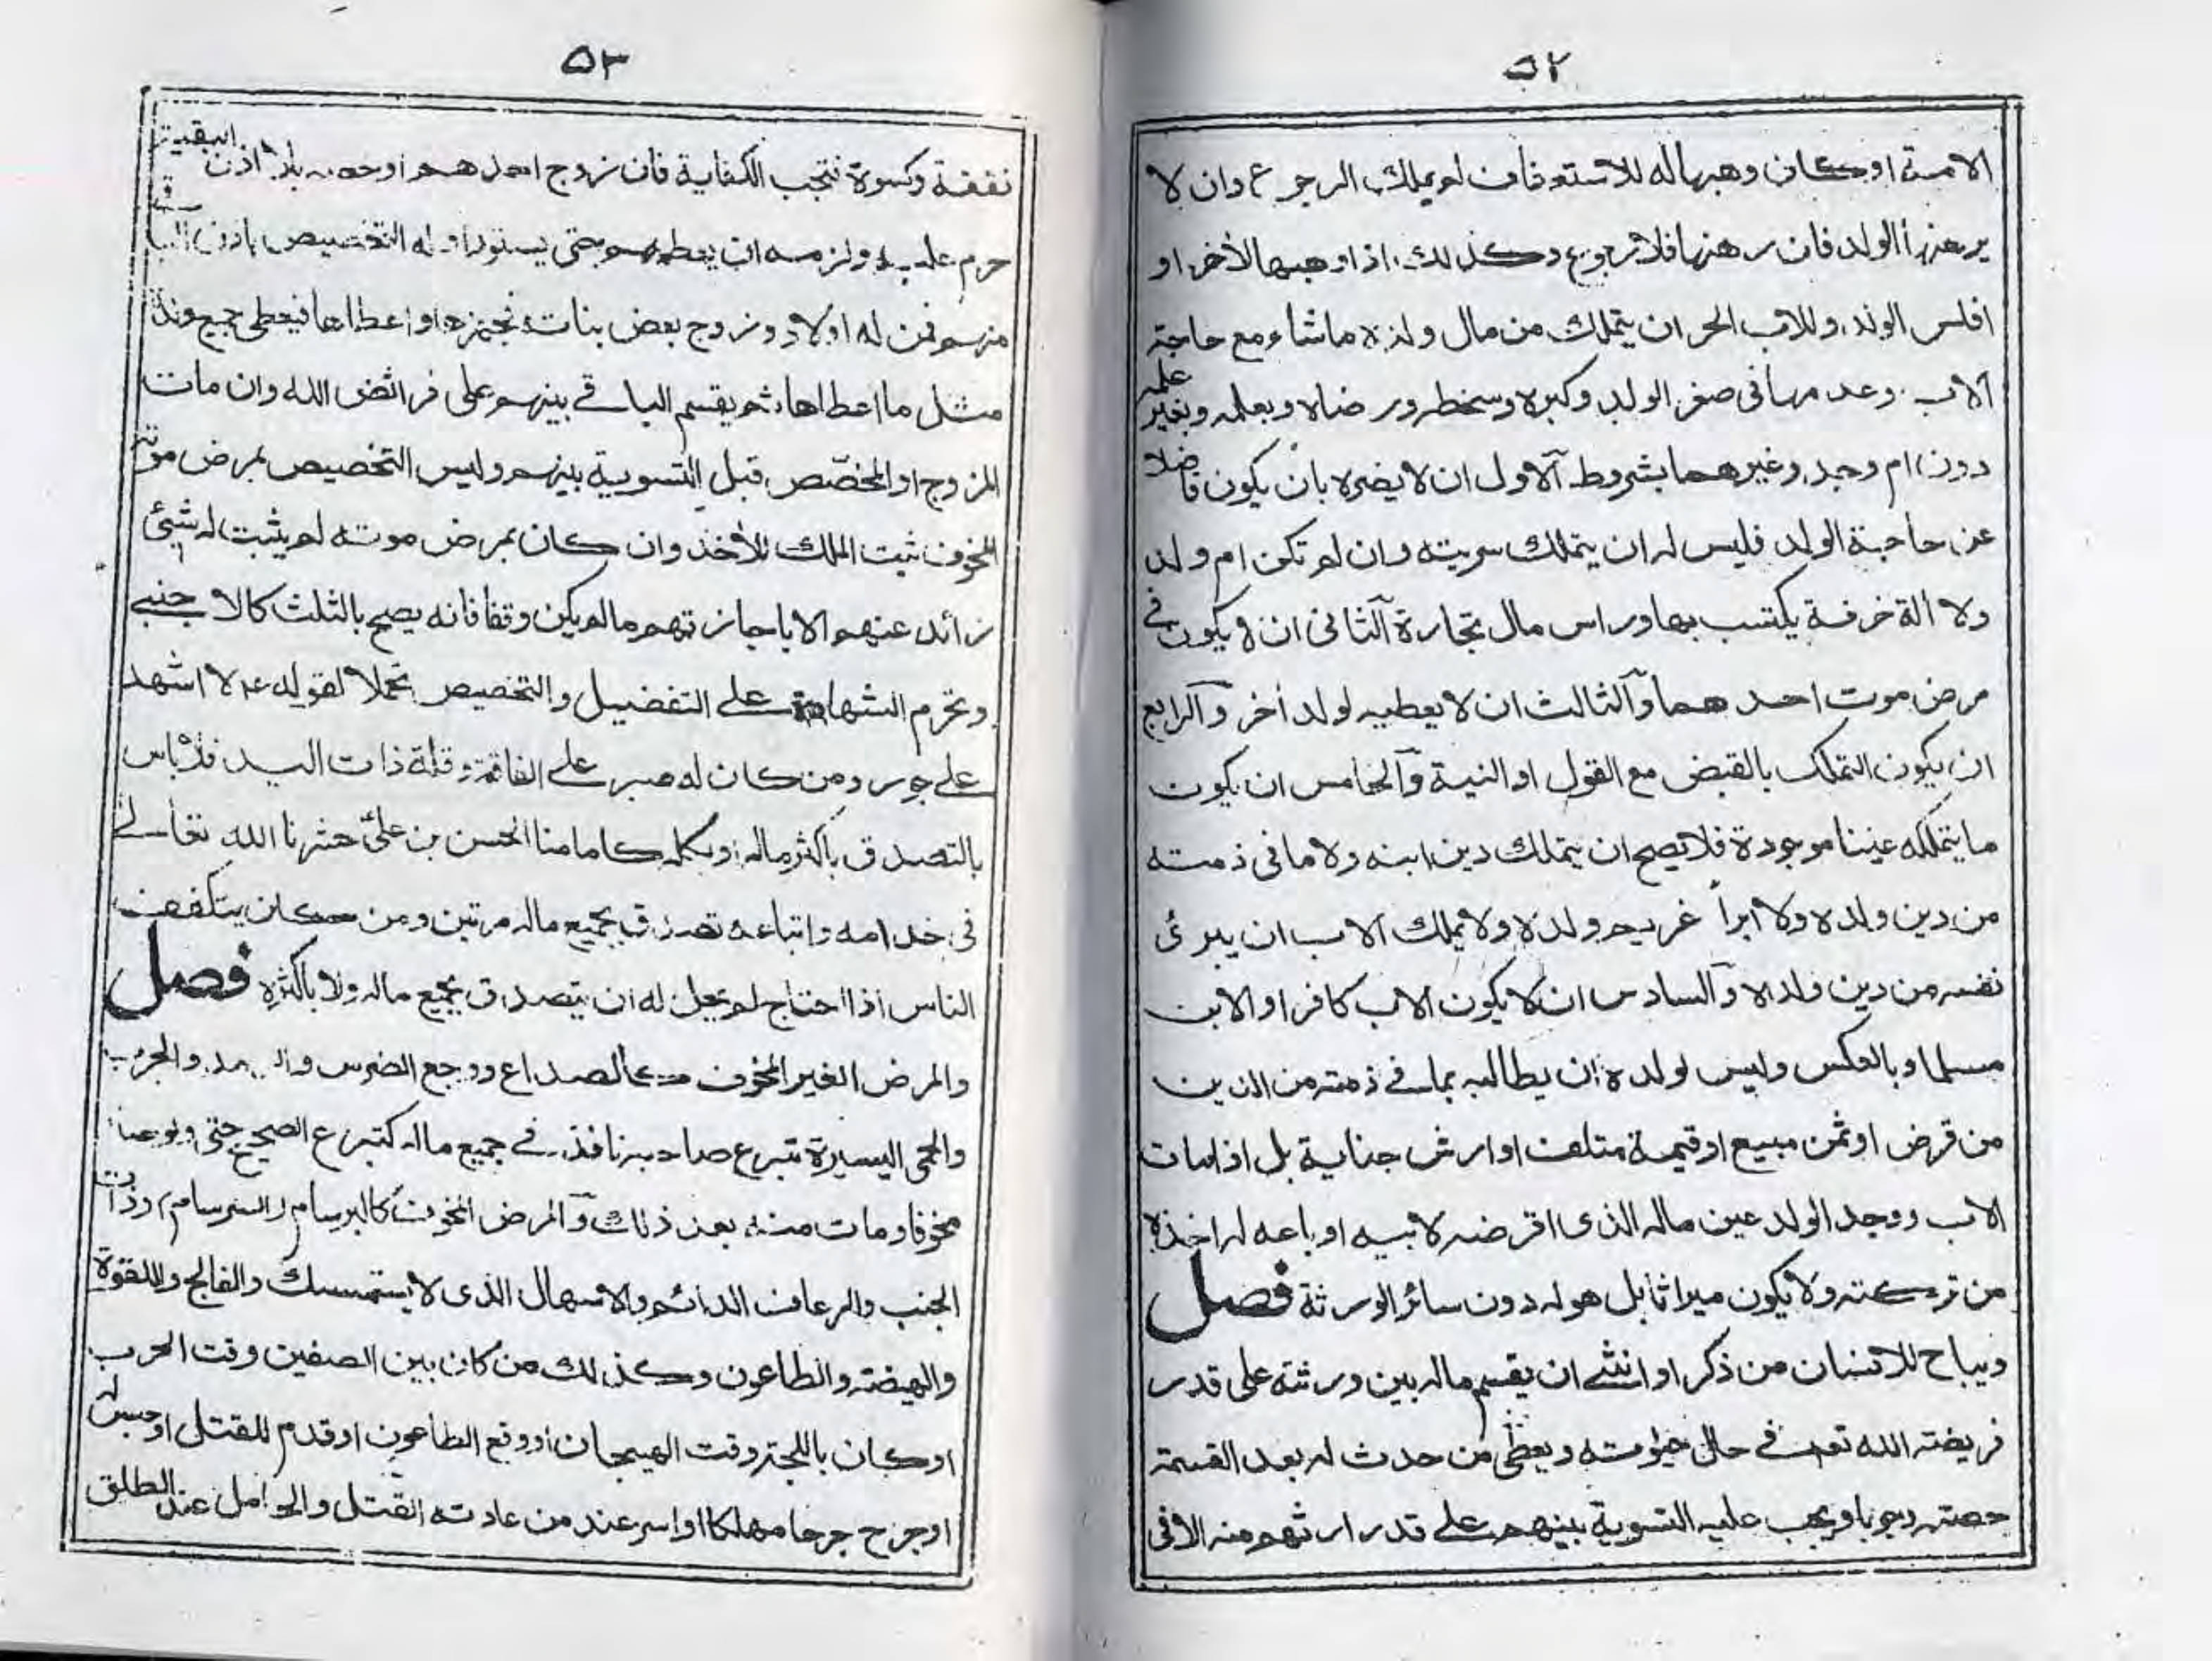 ٥٢
الامة او كان وهبها له للاستعفاف لم يملك الرجوع وان لا
يرهنها الولد فان رهنها فلا رجوع وكذلك اذا وهبها لأخر او
افلس الولد وللاب الحر ان يتملك من مال ولده ما شاء مع حاجة
الاب وعدمها فى صغر الولد وكبره وسخطه ورضاه وبعلمه وبغير علمه
دون ام وجد وغيرهما بشروط الاول ان لا يضره بان يكون فاضلا
عن حاجة الولد فليس له ان يتملك سريته وان لم تكن ام ولد
ولا ألة خرفة يكتسب بها وراس مال تجارة الثانى ان لا يكون فى
مرض موت احدهما والثالث ان لا يعطيه لولد أخر والرابع
ان يكون التملك بالقبض مع القول او النية والخامس ان يكون
ما يتملكه عينا موجودة فلا يصح ان يتملك دين ابنه ولا ما فى ذمته
من دين ولده ولا ابرأ غريم ولده ولا يملك الاب ان يبرئ
نفسه من دين ولده والسادس ان لا يكون الاب كافرا والابن
مسلما وبالعكس وليس لولده ان يطالبه بما فى ذمته من الدين
من قرض او ثمن مبيع او قيمة متلف او ارش جناية بل اذا مات
الاب ووجد الولد عين ماله الذى اقرضه لابيه او باعه له اخذه
من تركته ولا يكون ميراثا بل هو له دون سائر الورثة فصل
ويباح للانسان من ذكر او انثى ان يقسم ماله بين ورثته على قدر
فريضة الله تعه فى حال حيوته ويعطى من حدث له بعد القسمة
حصته وجوبا ويجب عليه التسوية بينهم على قدر ارثهم منه الا فى
٥٣
نفقة وكسوة فتجب الكفاية فان زوج احدهم او خصه بلا اذن البقية
حرم عليه ولزمه ان يعطيهم حتى يستووا وله التخصيص باذن الباقى
منهم فمن له اولاد وزوج بعض بناته فجهزها او اعطاها فيعطى جميع ولده
مثل ما اعطاها ثم يقسم الباقى بينهم على فرائض الله وان مات
المزوج او المخصّص قبل التسوية بينهم وليس التخصيص بمرض موته
المخوف ثبت الملك للأخذ وان كان بمرض موته لم يثبت له شيئ
زائد عنهم الا باجازتهم ما لم يكن وقفا فانه يصح بالثلث كالاجنبى
وتحرم الشهادة على التفضيل والتخصيص تحملا لقوله عم لا اشهد
على جور ومن كان له صبر على الفاقة وقلة ذات اليد فلا باس
بالتصدق باكثر ماله او بكله كامامنا الحسن بن علىّ حشرنا الله تعالى
فى خدامه واتباعه تصدق بجميع ماله مرتين ومن كان يتكفف
الناس اذا احتاج لم يحل له ان يتصدق بجميع ماله ولا باكثره فصل
والمرض الغير المخوف كالصداع ووجع الضرس والجرب
والحمى اليسيرة تبرع صاحبه نافذ فى جميع ماله كتبرع الصحيح حتى ولو صار
مخوفا ومات منه بعد ذلك والمرض المخوف كالبرسام والسرسام وذات
الجنب والرعاف الدائم والاسهال الذى لا يستمسك والفالج واللقوة
والهيضة والطاعون وكذلك من كان بين الصفين وقت الحرب
او كان باللجة وقت الهيجان او وقع الطاعون او قدم للقتل او حبس له
او جرح جرحا مهلكا او اسر عند من عادته القتل والحوامل عند الطلق